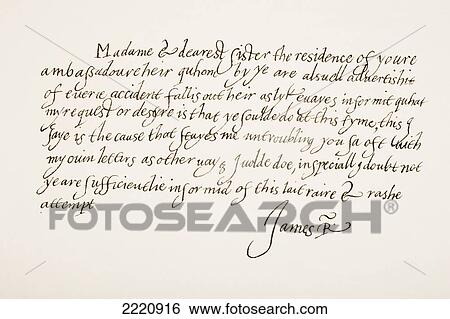 Madame & dearest sister the residence of youre
ambassadoure heir quhom by ye are alsueill advertishit
of everie accident fallis out heir as lykeuayes informit quhat
my request or desyre is that ye soulde do at this tyme, this I
saye is the cause that stayes me untroubling you sa oft with
my ouin letters as otheruayes I uolde doe, in speciall I doubt not
ye are sufficientlie informid of this lait raire & rashe
attempt
James R
FOTOSEARCH
2220916 www.fotosearch.com